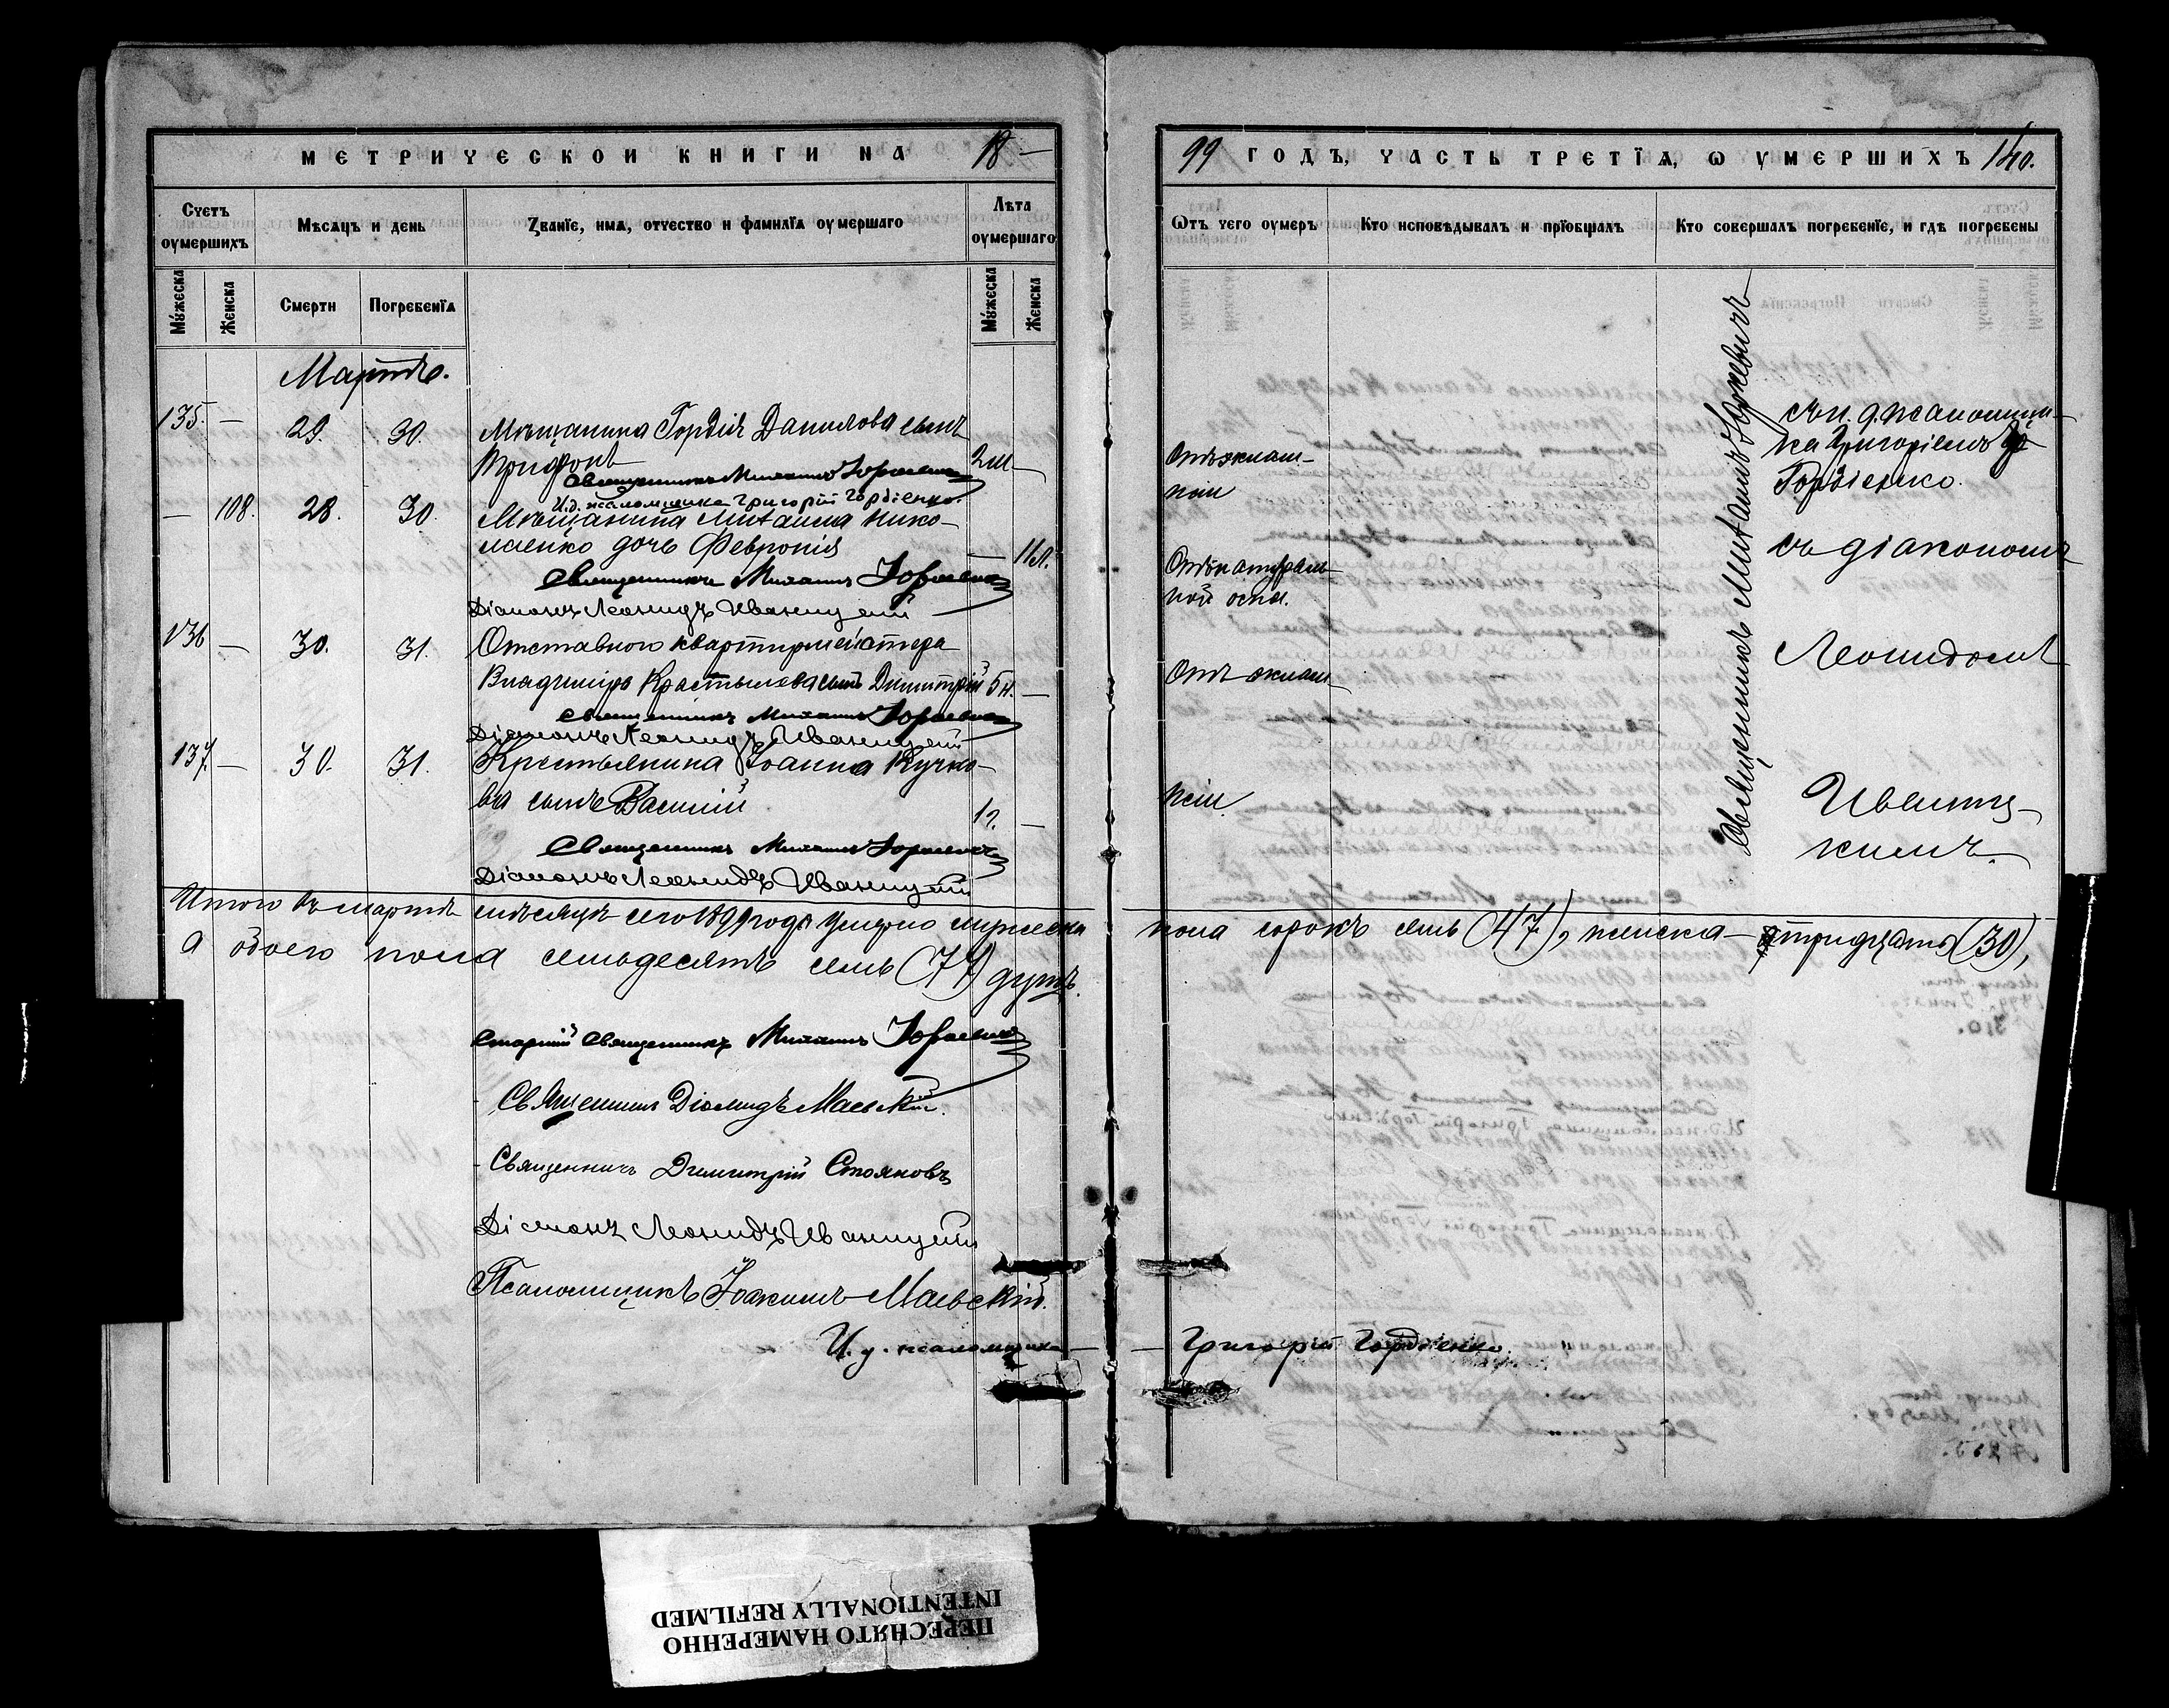 МЕТРИЧЕСКОЙ КНИГИ НА 18
99 ГОДЪ, ЧАСТЬ ТРЕТІЯ, Ѡ ОУМЕРШИХЪ 140.
Счетъ оумершихъ
Мѣсяцъ и день
Званїе, имя, отчество и фамилїя оумершаго
Лѣта оумершаго
Ѿтъ чего оумеръ
Кто исповѣдывалъ и прїобщалъ
Кто совершалъ погребенїе, и гдѣ погребены
Мужеска
Женска
Смерти
Погребенїя
Мужеска
Женска
Мартъ.
135. — 29. 30. Мѣщанина Гордія Данилова сынъ
Трифонъ 2 м. —
Священникъ Михаилъ
И.д. псаломщика Григорій Гордіенко.
— 108. 28. 30. Мѣщанина Михаила Нико-
лаенко дочь Февронія — 1 1/2 л.
Священникъ Михаилъ
Діаконъ Леонидъ Иваницкій
136 — 30. 31. Отставного квартирмейстера
Владиміра сынъ Димитрій 5 н. —
Священникъ Михаилъ
Діаконъ Леонидъ Иваницкій
137. — 30. 31. Крестьянина Іоанна Кучко-
ва сынъ Василій 1 г. —
Священникъ Михаилъ
Діаконъ Леонидъ Иваницкій
Отъ эклам-
псіи
Отъ натураль-
ной оспы.
Отъ эклам-
псіи.
Священникъ Михаилъ
съ и. д. псаломщи-
ка Григоріемъ
Гордіенко.
съ діакономъ
Леонидомъ
Иваниц-
кимъ.
Итого въ мартѣ мѣсяцѣ сего 1899 года умерло мужеска пола сорокъ семь (47), женска – тридцать (30),
а обоего пола семьдесятъ семь (77) душъ.
Старшій Священникъ Михаилъ
Священникъ Діомидъ Маевскій.
Священникъ Димитрій Стояновъ
Діаконъ Леонидъ Иваницкій
Псаломщикъ Іоакимъ Маевскій.
И. д. псаломщика — Григорій Гордіенко.
ПЕРЕСНЯТО НАМЕРЕННО
INTENTIONALLY REFILMED